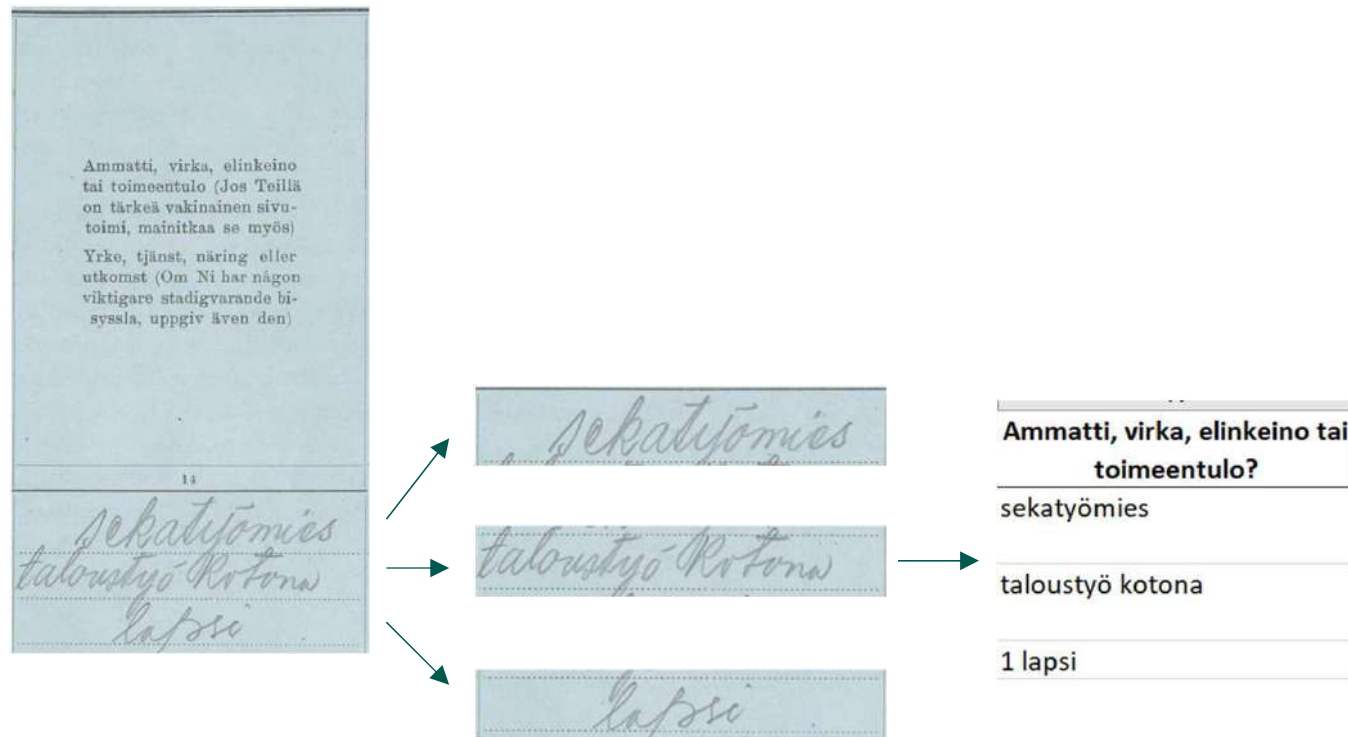 Ammatti, virka, elinkeino
tai toimeentulo (Jos Teillä
on tärkeä vakinainen sivu-
toimi, mainitkaa se myös)
Yrke, tjänst, näring eller
utkomst (Om Ni har någon
viktigare stadigvarande bi-
syssla, uppgiv även den)
14
sekatyömies
taloustyö kotona
lapsi
sekatyömies
taloustyö kotona
lapsi
Ammatti, virka, elinkeino tai
toimeentulo?
sekatyömies
taloustyö kotona
1 lapsi